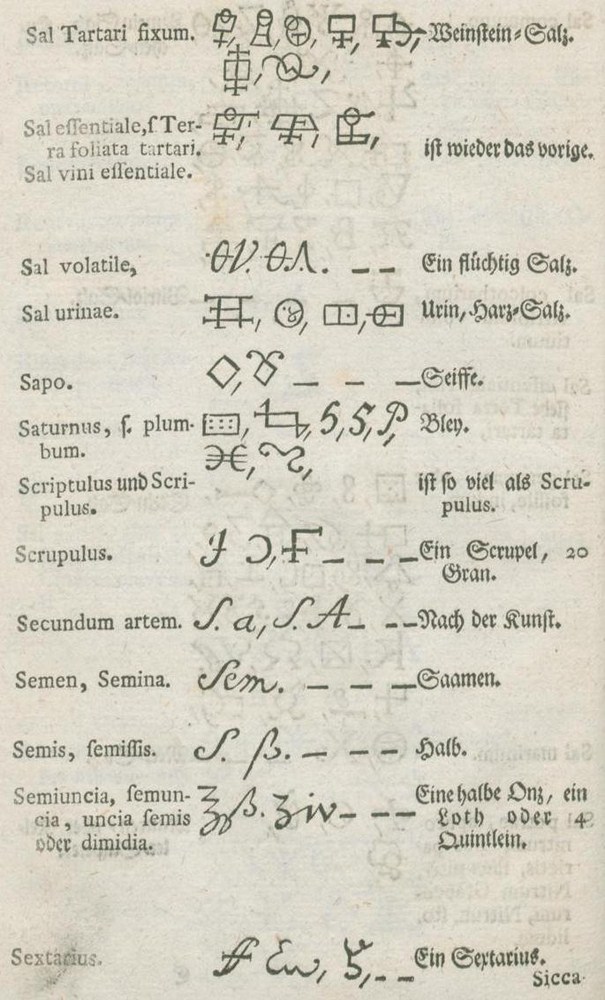 Sal Tartari fixum. Weinstein-Salz.
Sal eſſentiale, ſ Ter-
ra foliata tartari. ist wieder das vorige.
Sal vini eſſentiale.
Sal volatile, Ein flüchtig Salz.
Sal urinae. Urin, Harz-Salz.
Sapo. — — — Seiffe.
Saturnus, ſ. plum- Bley.
bum.
Scriptulus und Scri- ist so viel als Scru-
pulus. pulus.
Scrupulus. — — — Ein Scrupel, 20
Gran.
Secundum artem. S. a, S. A — — — Nach der Kunst.
Semen, Semina. Sem. — — — Saamen.
Semis, ſemiſſis. S. ß. — — — — Halb.
Semiuncia, ſemun- ʒß. ʒiv — — — Eine halbe Onz, ein
cia, uncia ſemis Loth oder 4
oder dimidia. Quintlein.
Sextarius. — — Ein Sextarius.
Sicca